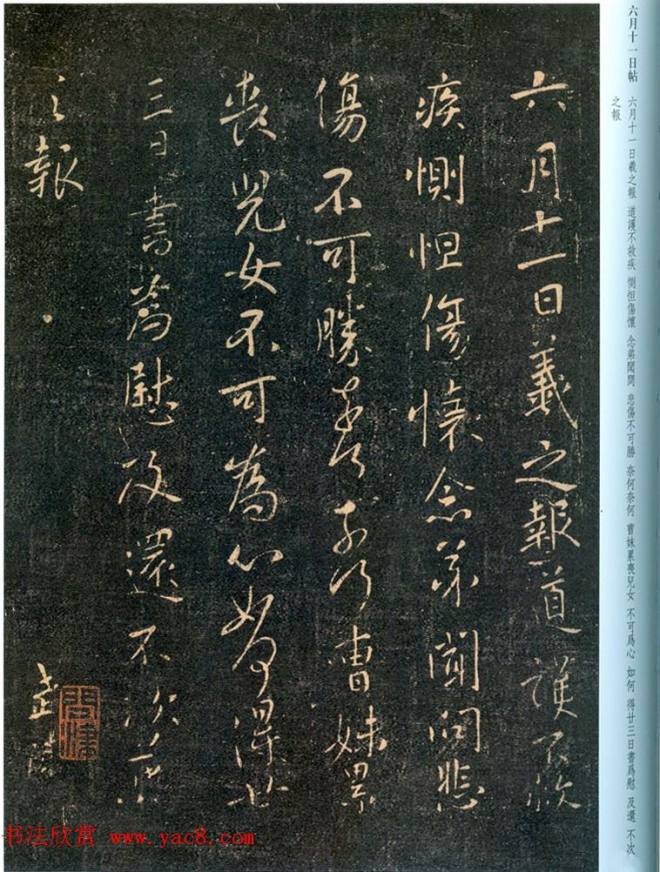 六月十一日帖 六月十一日羲之報 道護不救疾 惻怛傷懷 念弟聞問 悲傷不可勝 奈何奈何 曹妹累喪兒女 不可爲心 如何 得廿三日書爲慰 及還 不次
之報
六月十一日羲之報道護不救
疾惻怛傷懷念弟聞問悲
傷不可勝奈何奈何曹妹累
喪兒女不可為心如何得廿
三日書為慰及還不次羲
之報
书法欣赏 www.yac8.com